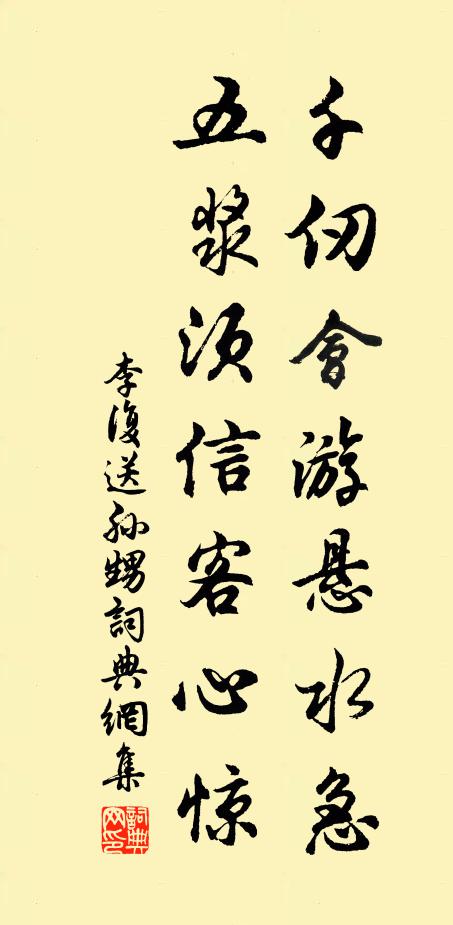 千仞會游悬水急
五漿須信客心惊
李復送孙甥詞典網集
詞典网印